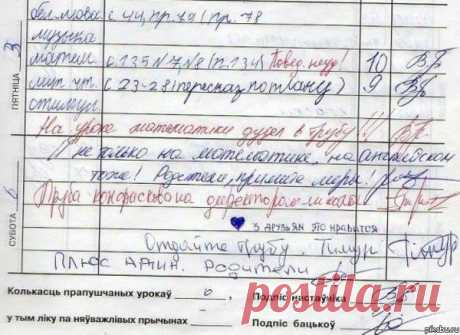 Бел.мова с 44, пр.79 (пр.78
музыка
матем. с 135 №7,№8 (п.134) Повед. неуд! 10
ПЯТНІЦА
лит. чт. (с 23-28) пересказ по плану) 9
стимул
На уроке математики дудел в трубу!!!
не только на математике, на английском
тоже! Родители, примите меры!
СУБОТА
Труба конфискована директором школы
3 друзьям это нравится
Отдайте трубу. Тимур
Плюс Родители
Колькасць прапушчаных урокаў
Подпіс настаўніка
у тым ліку па няўважлівых прычынах
Подпіс бацькоў
pikabu.ru